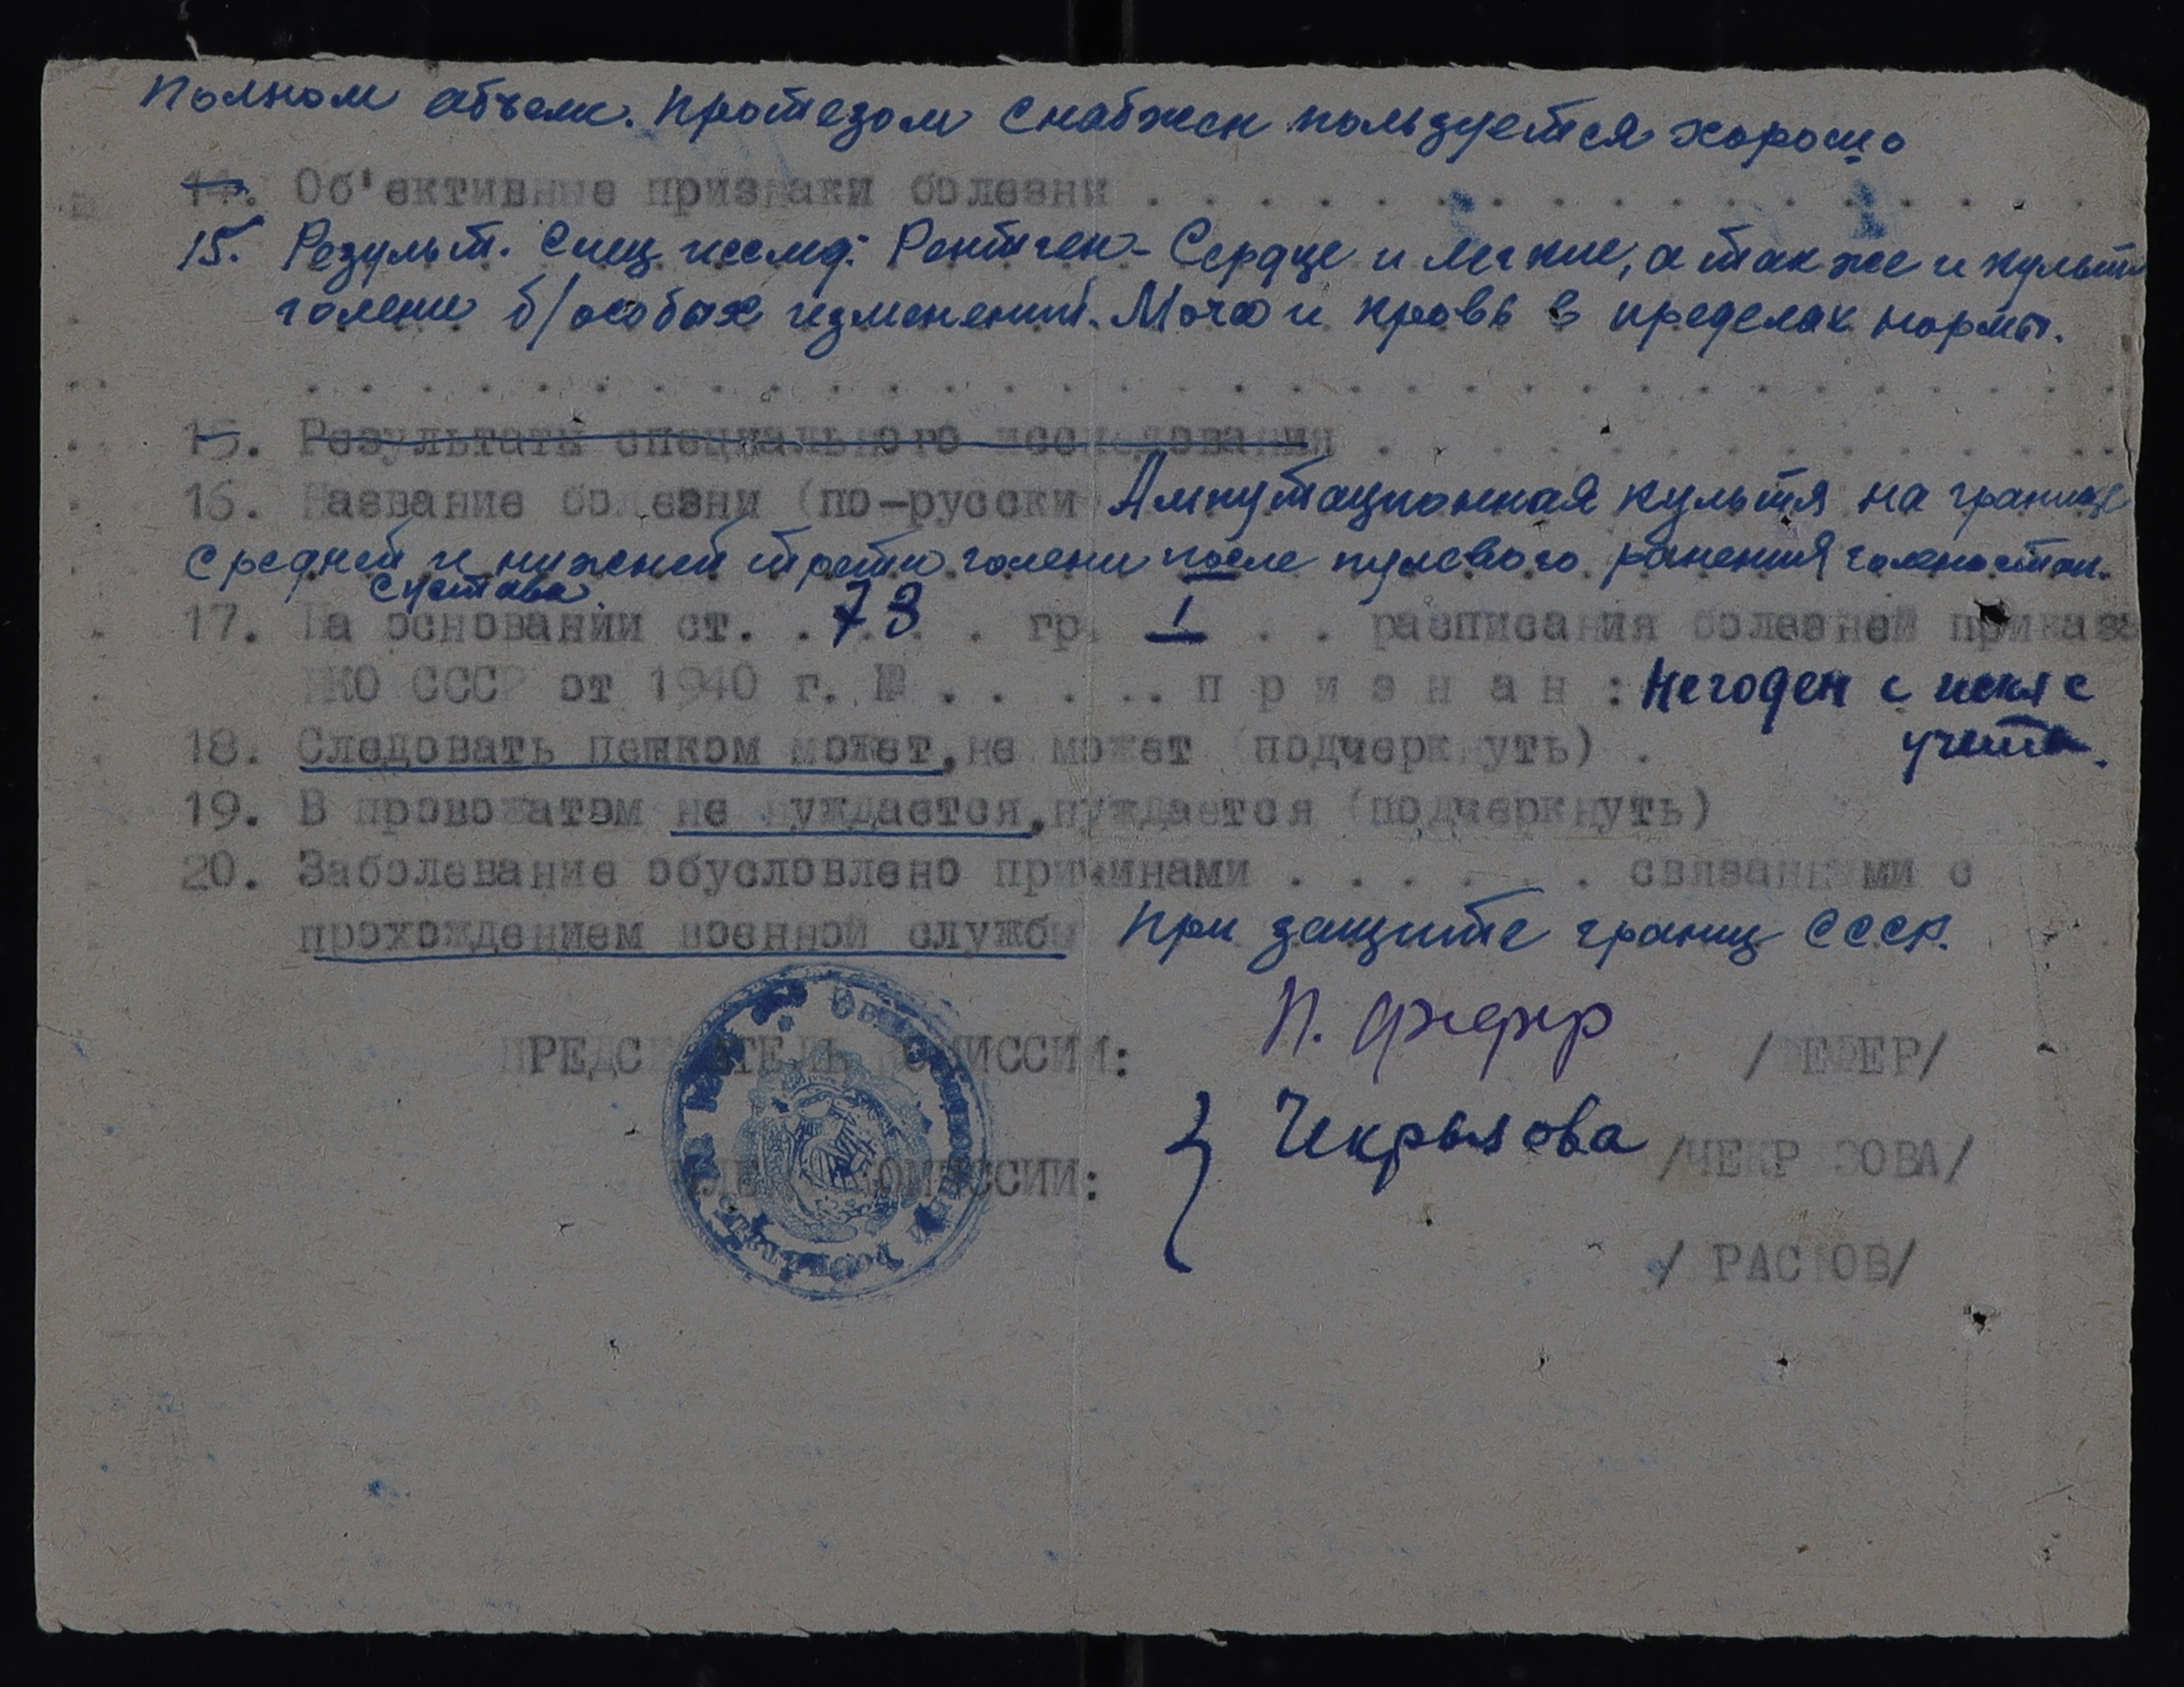 Полном объеме. Протезом снабжен пользуется хорошо
14. Об'ективные признаки болезни
15. Результ. спец. исслед: Рентген - Сердце и легкие, а также и культи
голени б/особых изменений. Моча и кровь в пределах нормы.
15. Результаты специального исследования
16. Название болезни (по-русски Ампутационная культя на границе
средней и нижней трети голени после пулевого ранения голеностоп.
сустава.
17. На основании ст. 73 гр. I расписания болезней приказа
НКО СССР от 1940 г. № признан: Негоден с искл с
учета.
18. Следовать пешком может, не может (подчеркнуть).
19. В провожатом не нуждается, нуждается (подчеркнуть)
20. Заболевание обусловлено причинами связанными с
прохождением военной службы При защите границ СССР.
ПРЕДСЕДАТЕЛЬ КОМИССИИ: /ФЕФЕР/
Чекрызова /ЧЕКРЫЗОВА/
КОМИССИИ: